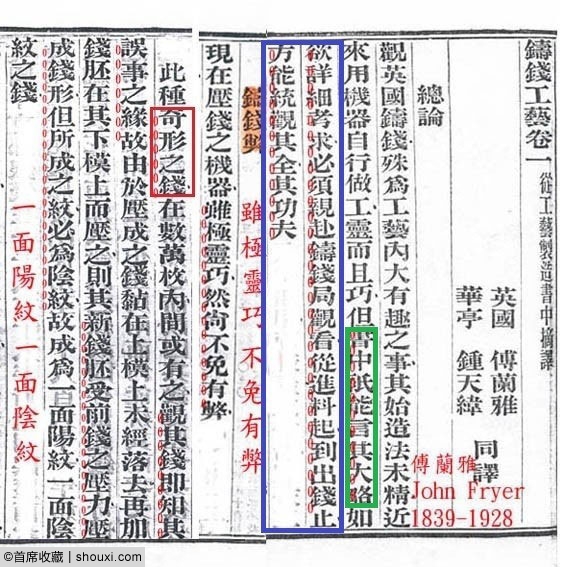 鑄錢工藝卷一 從工藝製造書中摘譯
英國 傅蘭雅
華亭 鍾天緯 同譯
總論
觀英國鑄錢殊爲工藝內大有趣之事其始造法未精近
來用機器自行做工靈而且巧但書中祇能言其大略如
欲詳細考求必須現赴鑄錢局觀看從進料起到出錢止
方能統觀其全其功夫
傅蘭雅
John Fryer
1839-1928
鑄錢弊
雖極靈巧不免有弊
現在壓錢之機器雖極靈巧然尚不免有弊
此種奇形之錢在數萬枚內間或有之觀其錢即知其
誤事之緣故由於壓成之錢黏在上模上未經落去再加
錢胚在其下模上而壓之則其新錢胚受前錢之壓力壓
成錢形但所成之紋必爲陰紋故成爲一面陽紋一面陰
紋之錢
一面陽紋一面陰紋
©首席收藏 | shouxi.com